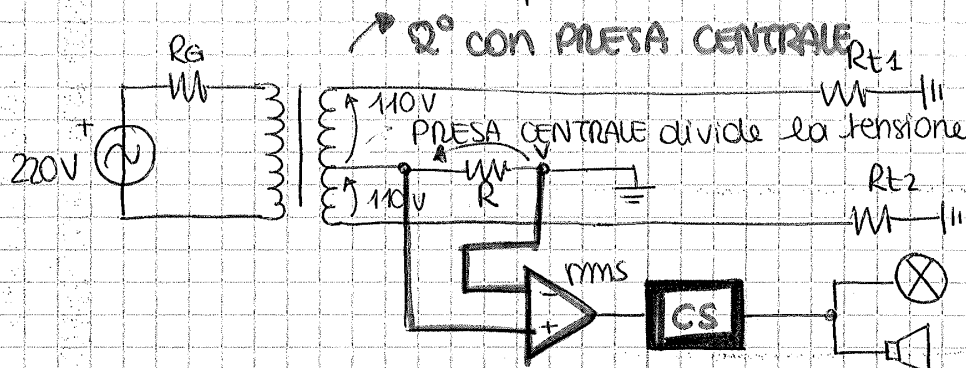 2° con PRESA CENTRALE
RG
Rt1
110 V
PRESA CENTRALE divide la tensione
+
220V
R
V
110 V
Rt2
rms
-
+
CS